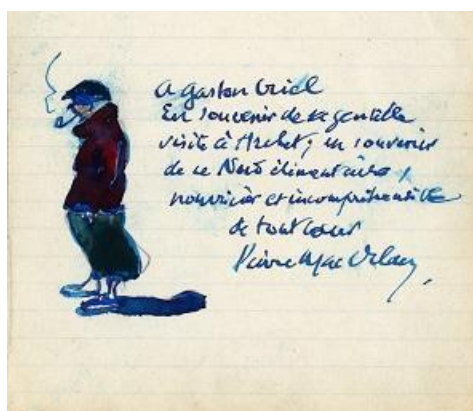 A Gaston Criel
En souvenir de sa gentille
visite à Archet, en souvenir
de ce Nord élémentaire,
nourricier et incompréhensible
de tout coeur
Pierre Mac Orlan